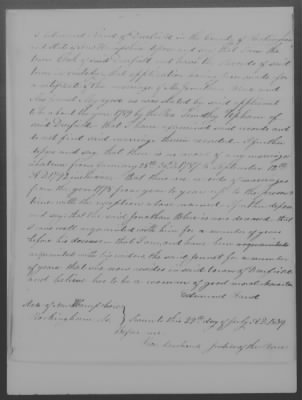 I Edmund Rand of Deerfield in the County of Rockingham
and State of New Hampshire depose and say that I am the
town Clerk of said Deerfield and have the records of said
town in custody, that application having been made for
a copy of the marriage of Jonathan and
his, as was stated by said applicant
to be about the year 1789 by the Rev. Timothy Upham of
said Deerfield that I have examined said records and
do not find said marriage therein recorded. I further
depose and say that there is no record of any marriages
therein from January 25th A.D. 1787 to September 12th
A.D. 1792 inclusive. But there are records of marriages
from the year 1773 from year to year up to the present
time with the exception above named. I further depose
and say that the said Jonathan is now deceased, that I
was well acquainted with him for a number of years
before his decease, that I am, and have been acquainted
acquainted with his widow the said for a number
of years that she now resides in said town of Deerfield
and believe her to be a woman of good moral character
Edmund Rand
State of New Hampshire
Rockingham, ss. Sworn to this 29th day of July A.D. 1839
before me
Justice of the Peace